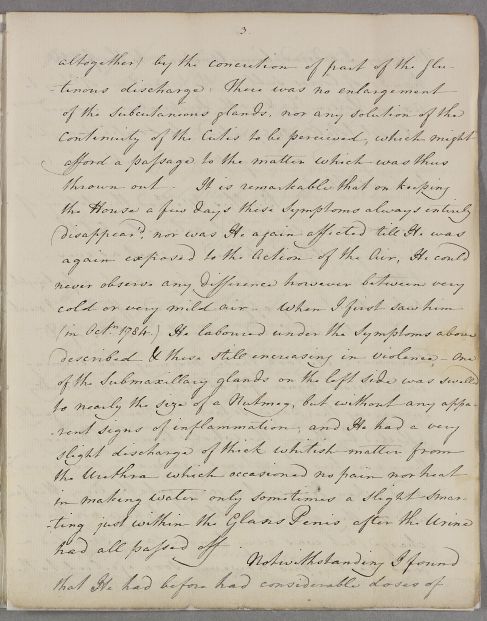 3.
altogether) by the concretion of part of the glu-
-tinous discharge. There was no enlargement
of the subcutaneous glands, nor any solution of the
Continuity of the Cutis to be perceived, which might
afford a passage to the matter which was thus
thrown out. It is remarkable that on keeping
the House a few days these Symptoms always entirely
disappear'd, nor was He again affected till He was
again exposed to the Action of the Air, He could
never observe any difference however between very
cold or very mild air. When I first saw him
(in Octr. 1784.) He laboured under the Symptoms above
described & these still increasing in violence. One
of the Submaxillary glands on the left side was swell'd
to nearly the size of a Nutmeg, but without any appa-
-rent signs of inflammation, and He had a very
slight discharge of thick whitish matter from
the Urethra which occasioned no pain nor heat
in making water only sometimes a slight smar-
-ting just within the Glans Penis, after the Urine
had all passed off.
Notwithstanding I found
that He had before had considerable doses of